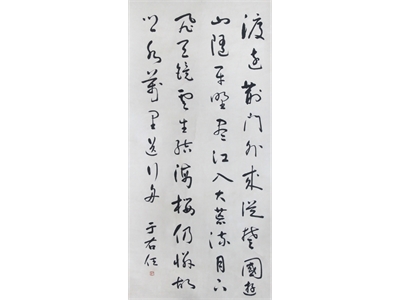 渡遠荊門外來從楚國遊
山隨平野盡江入大荒流月下
飛天鏡雲生結海樓仍憐故
鄉水萬里送行舟 于右任